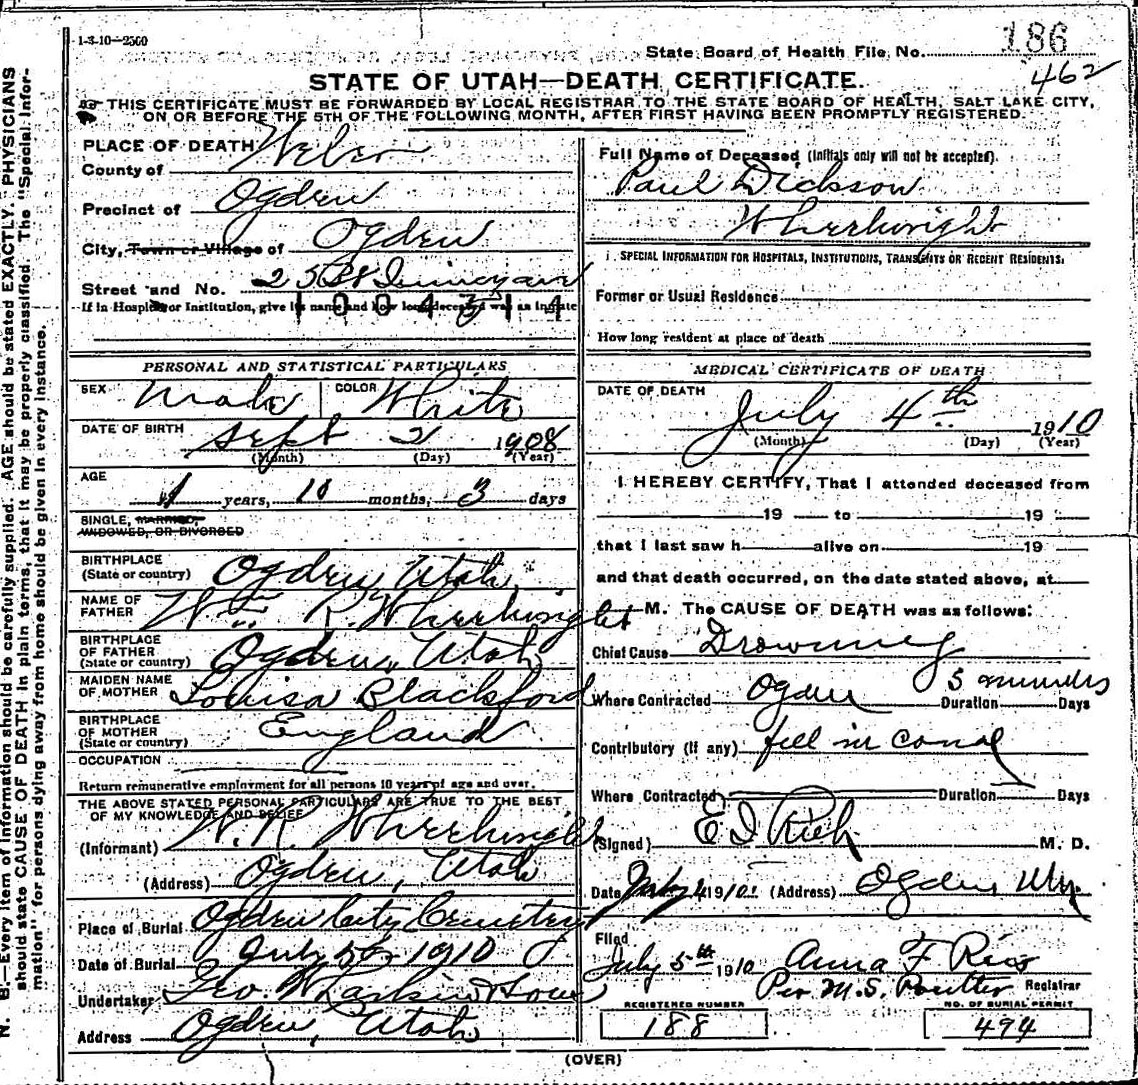 1-3-10-2500
State Board of Health File No. 186
462
STATE OF UTAH—DEATH CERTIFICATE.
THIS CERTIFICATE MUST BE FORWARDED BY LOCAL REGISTRAR TO THE STATE BOARD OF HEALTH, SALT LAKE CITY,
ON OR BEFORE THE 5TH OF THE FOLLOWING MONTH, AFTER FIRST HAVING BEEN PROMPTLY REGISTERED.
PLACE OF DEATH
County of Weber
Precinct of Ogden
City, Town or Village of Ogden
Street and No.
If in Hospital or Institution, give its name and how long deceased was an inmate
1004314
PERSONAL AND STATISTICAL PARTICULARS
SEX Male COLOR White
DATE OF BIRTH Sept 2 1908
(Month) (Day) (Year)
AGE
1 years, 10 months, 3 days
SINGLE, MARRIED,
WIDOWED, OR DIVORCED
BIRTHPLACE
(State or country) Ogden Utah
NAME OF
FATHER Wm R. Wheelwright
BIRTHPLACE
OF FATHER
(State or country) Ogden, Utah
MAIDEN NAME
OF MOTHER Louisa Blackford
BIRTHPLACE
OF MOTHER
(State or country) England
OCCUPATION
Return remunerative employment for all persons 10 years of age and over.
THE ABOVE STATED PERSONAL PARTICULARS ARE TRUE TO THE BEST
OF MY KNOWLEDGE AND BELIEF
(Informant) W. R. Wheelwright
(Address) Ogden, Utah
Place of Burial Ogden City Cemetery
Date of Burial July 5th 1910
Undertaker, Geo. W Larkin & Sons
Address Ogden, Utah
Full Name of Deceased (Initials only will not be accepted).
Paul Dickson
Wheelwright
SPECIAL INFORMATION FOR HOSPITALS, INSTITUTIONS, TRANSIENTS OR RECENT RESIDENTS:
Former or Usual Residence
How long resident at place of death
MEDICAL CERTIFICATE OF DEATH
DATE OF DEATH
July 4th 1910
(Month) (Day) (Year)
I HEREBY CERTIFY, That I attended deceased from
19 to 19
that I last saw h alive on 19
and that death occurred, on the date stated above, at
M. The CAUSE OF DEATH was as follows:
Chief Cause Drowning
Where Contracted Ogden Duration 5 minutes Days
Contributory (if any) fell in canal
Where Contracted Duration Days
(Signed) E I Rich M. D.
Date July 4 1910 (Address) Ogden Utah
Filed
July 5th 1910 Anna F Rice
Per M.S. Poulter Registrar
REGISTERED NUMBER NO. OF BURIAL PERMIT
188 494
(OVER)
N. B.—Every item of information should be carefully supplied. AGE should be stated EXACTLY. PHYSICIANS
should state CAUSE OF DEATH in plain terms, that it may be properly classified. The "Special Infor-
mation" for persons dying away from home should be given in every instance.